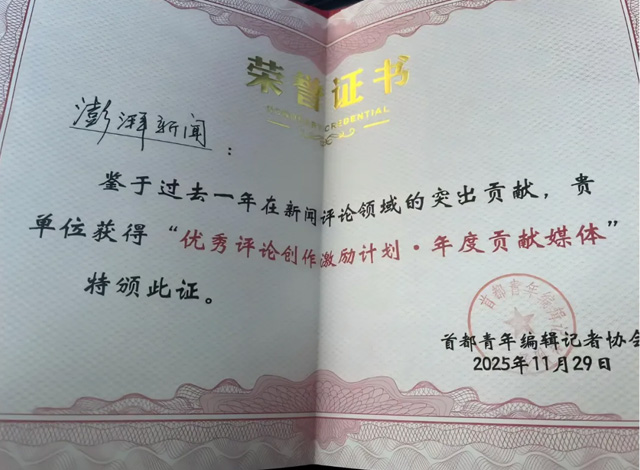 荣誉证书
澎湃新闻：
鉴于过去一年在新闻评论领域的突出贡献，贵
单位获得“优秀评论创作激励计划·年度贡献媒体”
特颁此证。
首都青年编辑记
首都青年编辑记者协会
2025年11月29日